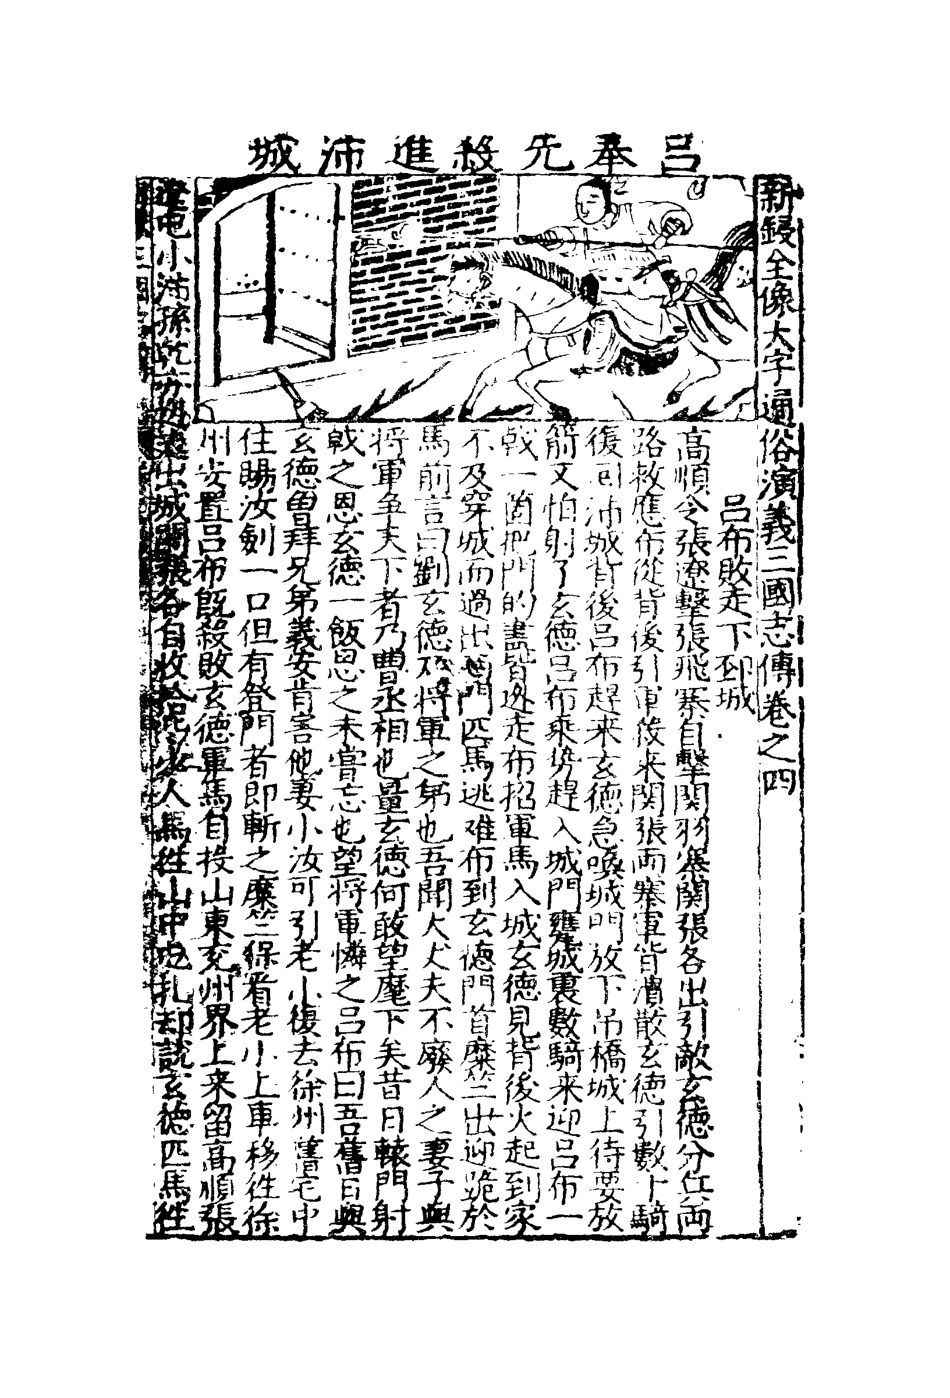 呂奉先殺進沛城
新鋟全像大字通俗演義三國志傳卷之四
呂布敗走下邳城
高順令張遼擊張飛寨自擊関羽寨関張各出引敵玄德分仁両
路救應布從背後引軍後来関張両寨軍皆潰散玄德引數十騎
復回沛城背後呂布趕来玄德急喚城門放下吊橋城上待要放
箭又怕射了玄德呂布乘势趕入城門甕城裏數騎来迎呂布一
戟一箇把門的盡皆逃走布招軍馬入城玄德見背後火起到家
不及穿城而過出門匹馬逃难布到玄德門首糜竺出迎跪於
馬前言曰劉玄德乃將軍之弟也吾聞大丈夫不廢人之妻子與
将軍争天下者乃曹丞相也量玄德何敢望麾下矣昔日轅門射
戟之恩玄德一飯思之未嘗忘也望将軍憐之呂布曰吾舊日與
玄德曽拜兄弟義安肯害他妻小汝可引老小復去徐州舊宅中
住賜汝劍一口但有登門者即斬之糜竺保着老小上車移徃徐
州安置呂布既殺敗玄德軍馬自投山東兖州界上来留高順張
遼屯小沛孫乾出城關張各自收拾人馬徃山中屯扎却説玄德匹馬徃